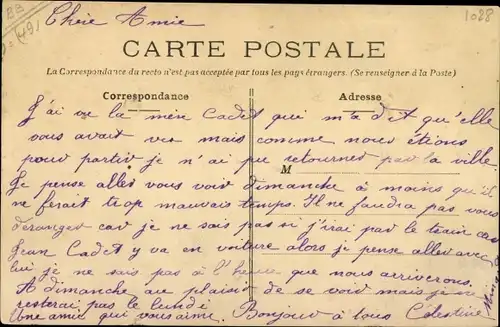 Chère Amie
1028
CARTE POSTALE
La Correspondance du recto n'est pas acceptée par tous les pays étrangers. (Se renseigner à la Poste)
Correspondance
Adresse
M
J'ai vu la mère Cadet qui m'a dit qu'elle
vous avait vu mais comme nous étions
pour partir je n'ai pu retourner par la ville.
Je pense aller vous voir dimanche à moins qu'il
ne ferait trop mauvais temps. Il ne faudra pas vous
deranges car je ne sais pas si j'irai par le train car
Jean Cadet y va en voiture alors je pense aller avec
lui je ne sais pas à l'heure que nous arriverons.
A dimanche au plaisir de se voir mais je ne
resterai pas le lundi
Une amie qui vous aime. Bonjour à tous Celestine